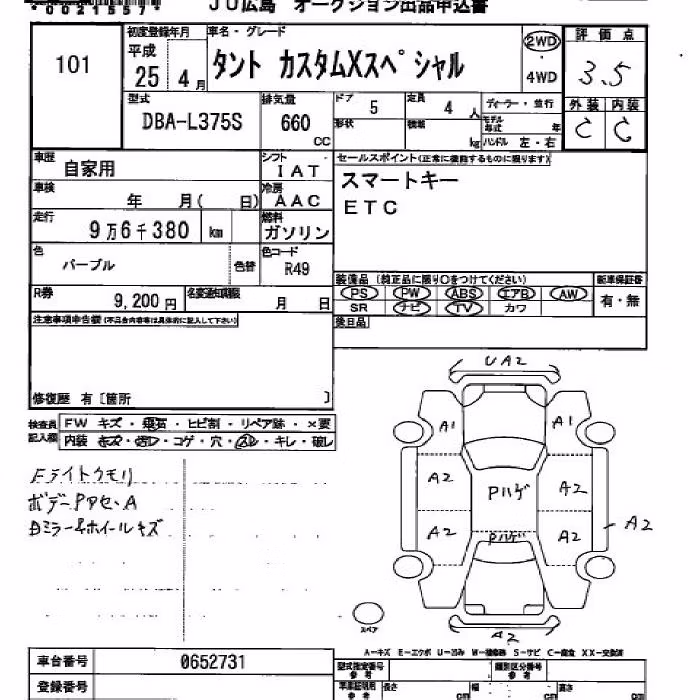 *0021557*
JU広島 オークション出品申込書
101
初度登録年月
平成
25 4月
車名・グレード
タント カスタムXスペシャル
2WD
・
4WD
評価点
3.5
外装 内装
C C
型式
DBA-L375S
排気量
660
CC
ドア
5
定員
4人
形状
積載
kg
ディーラー・並行
モデル年式
年
ハンドル 左・右
車歴
自家用
シフト
IAT
車検
年 月( 日)
冷房
AAC
走行
9万6千380 km
燃料
ガソリン
色
パープル
色替
色コード
R49
R券
9,200円
名変通知期限
月 日
セールスポイント(正常に機能するものに限ります)
スマートキー
ETC
装備品(純正品に限り○をつけてください)
新車保証書
PS PW ABS エアB AW
有・無
SR ナビ TV カワ
後日品
注意事項申告欄(不具合内容等は具体的に記入して下さい)
修復歴 有〔箇所 〕
検査員記入欄
FW キズ・飛石・ヒビ割・リペア跡・×要
内装 キズ・汚レ・コゲ・穴・スレ・キレ・破レ
Fライトクモリ
ボデーPアセ、A
Dミラー&ホイールキズ
UA2
A1
A1
A2
Pハゲ
A2
A2
Pハゲ
A2
A2
A2
スペア
A-キズ E-エクボ U-凹み W-補修跡 S-サビ C-腐食 XX-交換済
車台番号
0652731
登録番号
型式指定番号
参考
類別区分番号
参考
車庫証明用
参考
長さ
cm
幅
cm
高さ
cm